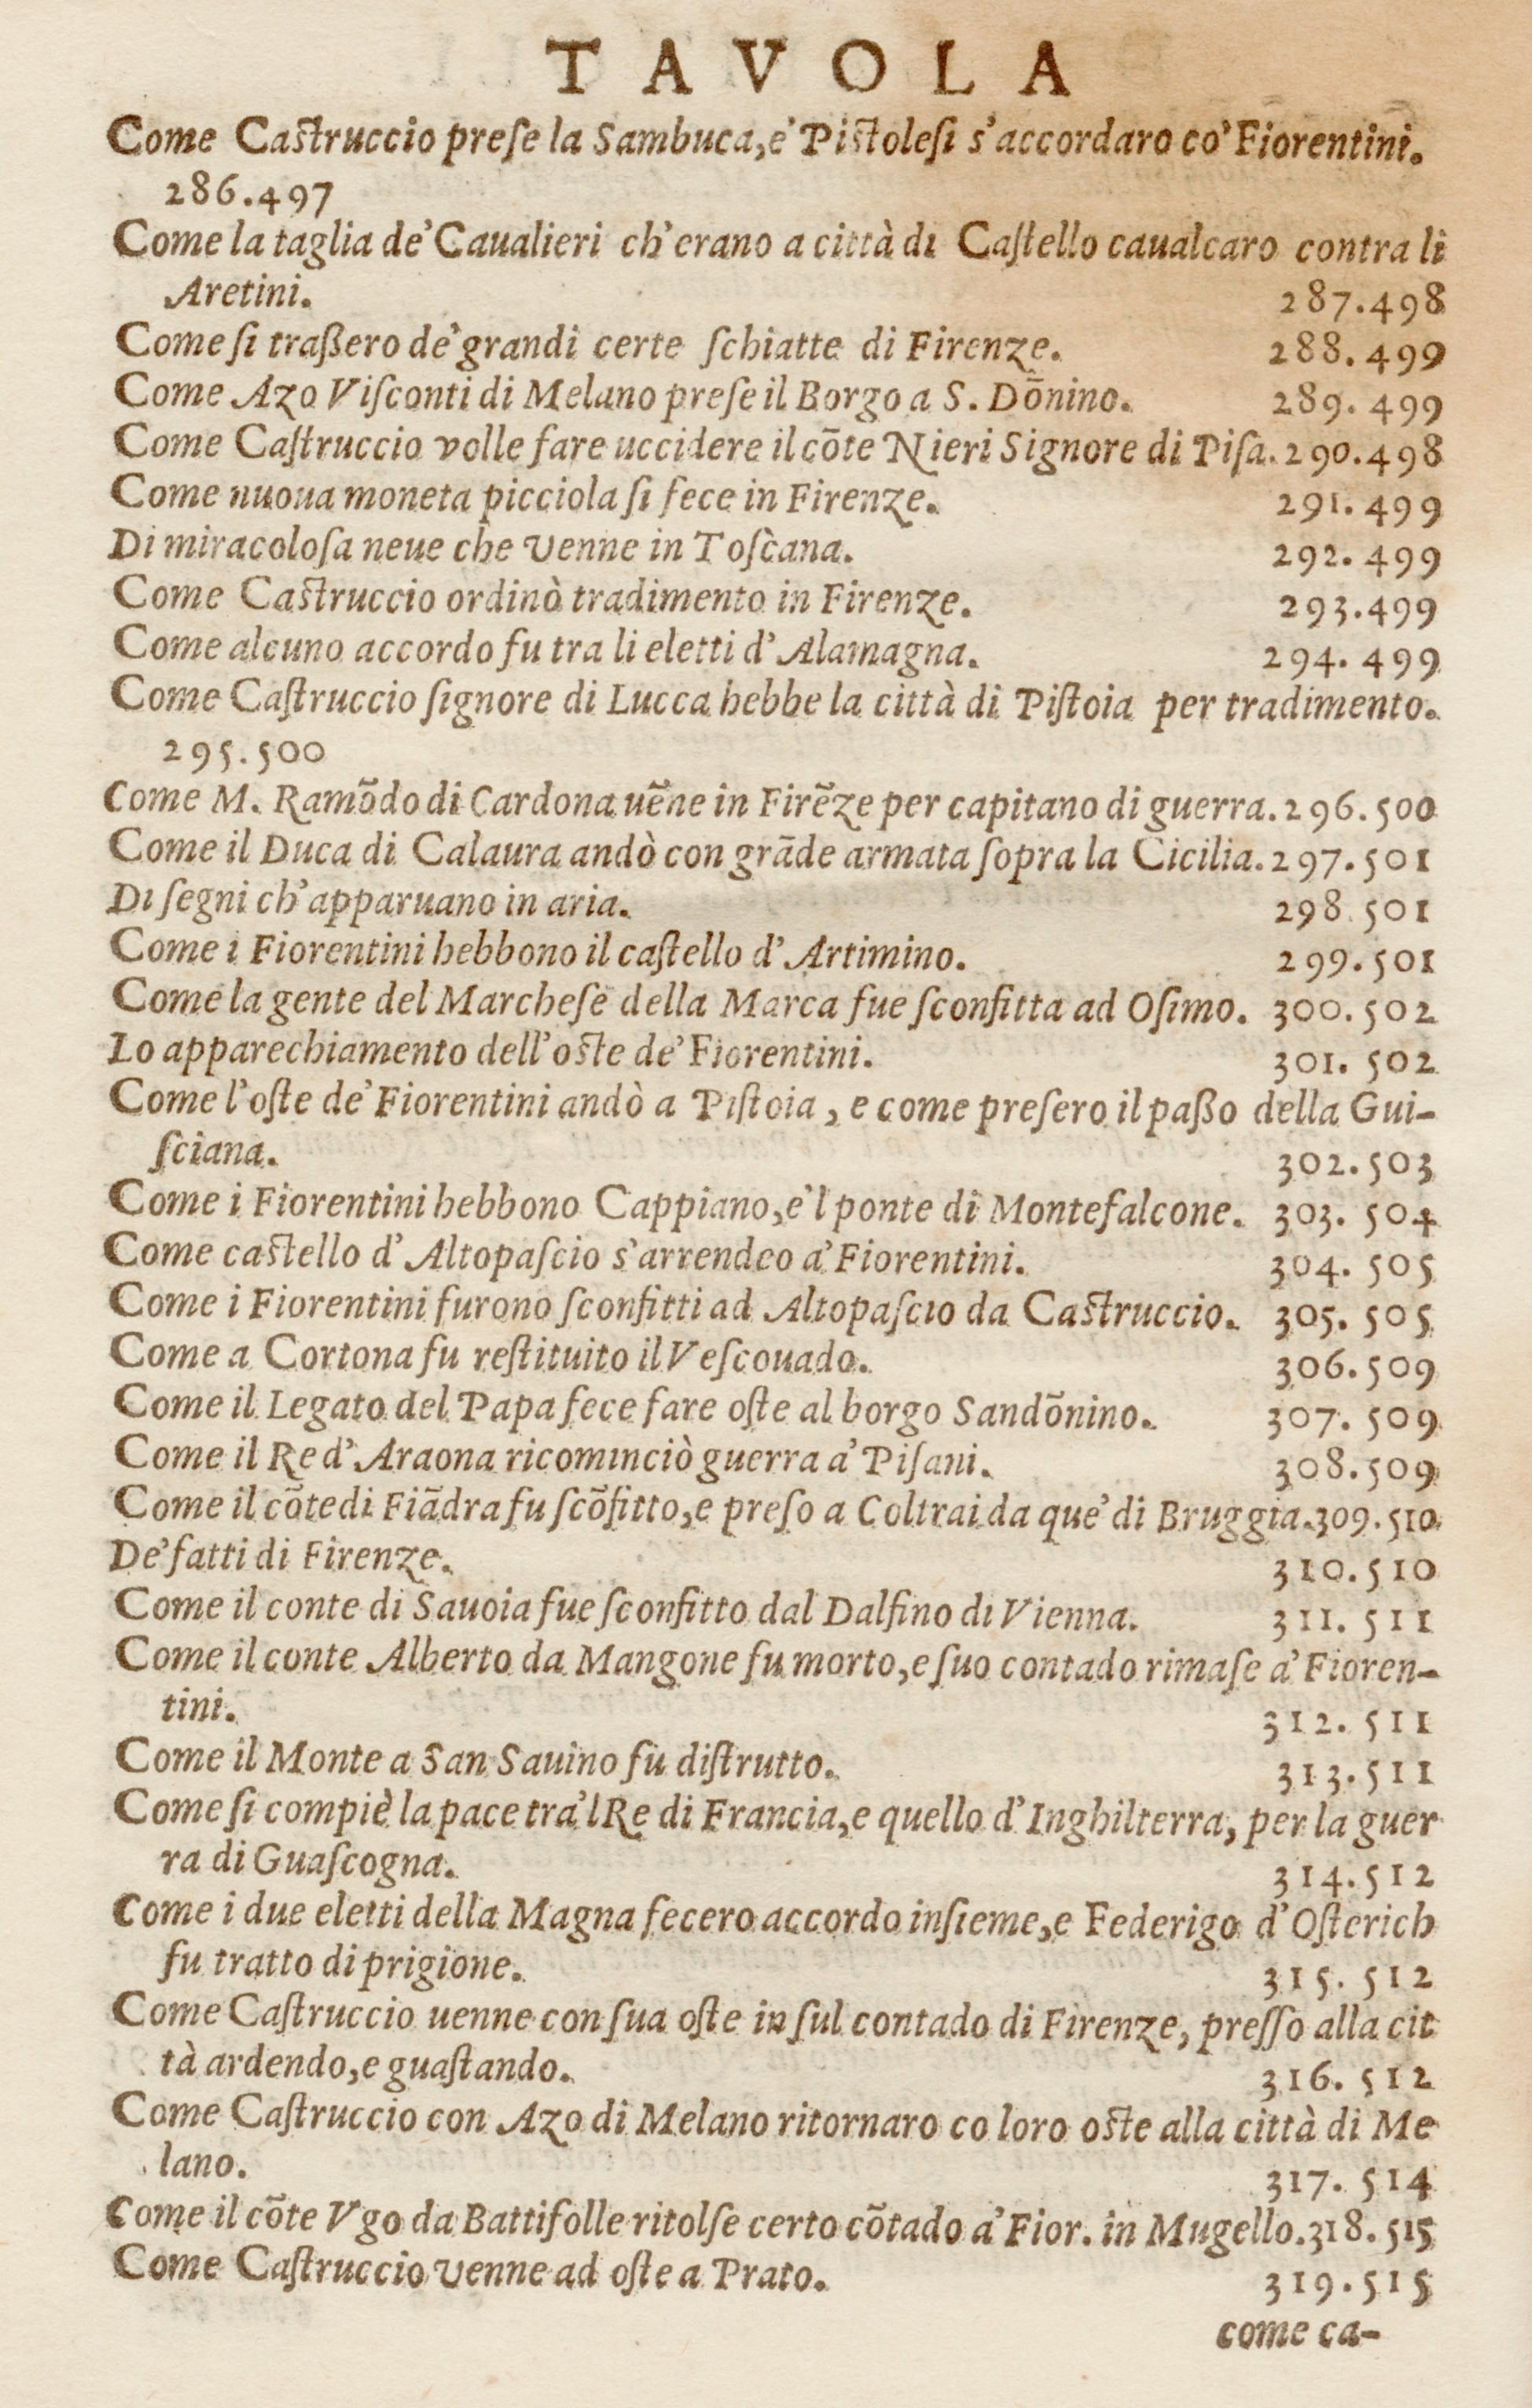 TAVOLA
Come Castruccio prese la Sambuca, e' Pistolesi s'accordaro co' Fiorentini.
286.497
Come la taglia de' Caualieri ch'erano a città di Castello caualcaro contra li
Aretini. 287.498
Come si traßero de' grandi certe schiatte di Firenze. 288.499
Come Azo Visconti di Melano prese il Borgo a S. Dōnino. 289.499
Come Castruccio volle fare uccidere il cōte Nieri Signore di Pisa. 290.498
Come nuoua moneta picciola si fece in Firenze. 291.499
Di miracolosa neue che venne in Toscana. 292.499
Come Castruccio ordinò tradimento in Firenze. 293.499
Come alcuno accordo fu tra li eletti d'Alamagna. 294.499
Come Castruccio signore di Lucca hebbe la città di Pistoia per tradimento.
295.500
Come M. Ramōdo di Cardona uēne in Firēze per capitano di guerra. 296.500
Come il Duca di Calaura andò con grāde armata sopra la Cicilia. 297.501
Di segni ch'apparuano in aria. 298.501
Come i Fiorentini hebbono il castello d'Artimino. 299.501
Come la gente del Marchese della Marca fue sconfitta ad Osimo. 300.502
Lo apparechiamento dell'oste de' Fiorentini. 301.502
Come l'oste de' Fiorentini andò a Pistoia, e come presero il paßo della Gui-
sciana. 302.503
Come i Fiorentini hebbono Cappiano, e'l ponte di Montefalcone. 303.504
Come castello d'Altopascio s'arrendeo a' Fiorentini. 304.505
Come i Fiorentini furono sconfitti ad Altopascio da Castruccio. 305.505
Come a Cortona fu restituito il Vescouado. 306.509
Come il Legato del Papa fece fare oste al borgo Sandōnino. 307.509
Come il Re d'Araona ricominciò guerra a' Pisani. 308.509
Come il cōte di Fiādra fu scōfitto, e preso a Coltrai da que' di Bruggia. 309.510
De' fatti di Firenze. 310.510
Come il conte di Sauoia fue sconfitto dal Dalfino di Vienna. 311.511
Come il conte Alberto da Mangone fu morto, e suo contado rimase a' Fioren-
tini. 312.511
Come il Monte a San Sauino fu distrutto. 313.511
Come si compiè la pace tra'l Re di Francia, e quello d'Inghilterra, per la guer
ra di Guascogna. 314.512
Come i due eletti della Magna fecero accordo insieme, e Federigo d'Osterich
fu tratto di prigione. 315.512
Come Castruccio uenne con sua oste in sul contado di Firenze, presso alla cit
tà ardendo, e guastando. 316.512
Come Castruccio con Azo di Melano ritornaro co loro oste alla città di Me
lano. 317.514
Come il cōte Vgo da Battifolle ritolse certo cōtado a' Fior. in Mugello. 318.515
Come Castruccio venne ad oste a Prato. 319.515
come ca-